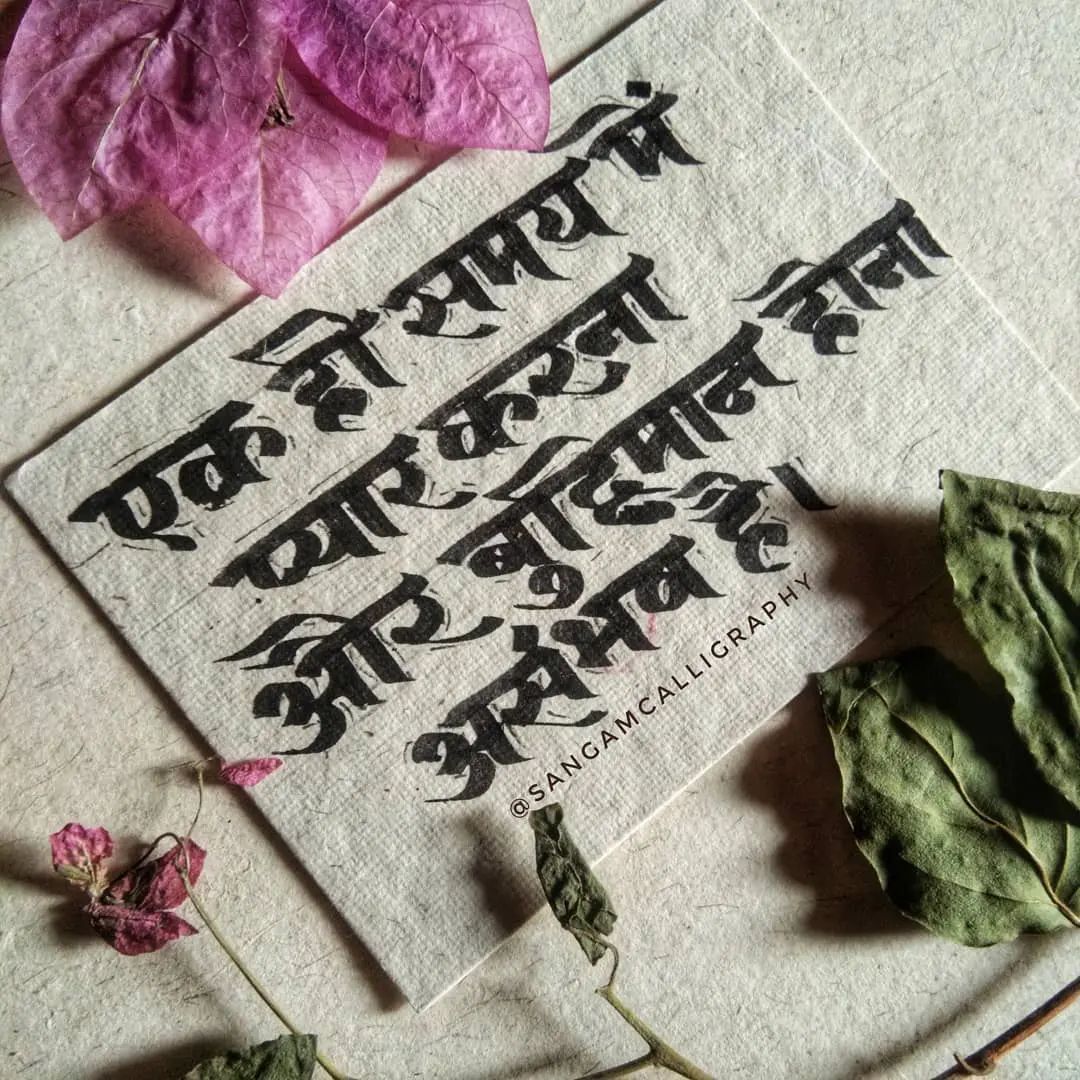 एक ही समय में
प्यार करना
और बुद्धिमान होना
असंभव है।
@SANGAMCALLIGRAPHY